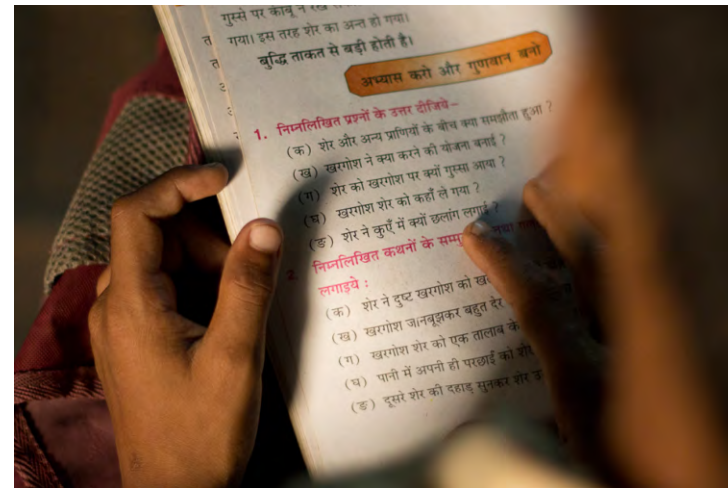 गुस्से पर काबू न रख
गया। इस तरह शेर का अन्त हो गया।
बुद्धि ताकत से बड़ी होती है।
अभ्यास करो और गुणवान बनो
1. निम्नलिखित प्रश्नों के उत्तर दीजिये–
(क) शेर और अन्य प्राणियों के बीच क्या समझौता हुआ ?
(ख) खरगोश ने क्या करने की योजना बनाई ?
(ग) शेर को खरगोश पर क्यों गुस्सा आया ?
(घ) खरगोश शेर को कहाँ ले गया ?
(ङ) शेर ने कुएँ में क्यों छलांग लगाई ?
2. निम्नलिखित कथनों के
लगाइये :
(क) शेर ने दुष्ट खरगोश को
(ख) खरगोश जानबूझकर बहुत देर
(ग) खरगोश शेर को एक तालाब के
(घ) पानी में अपनी ही परछाई को शेर
(ङ) दूसरे शेर की दहाड़ सुनकर शेर